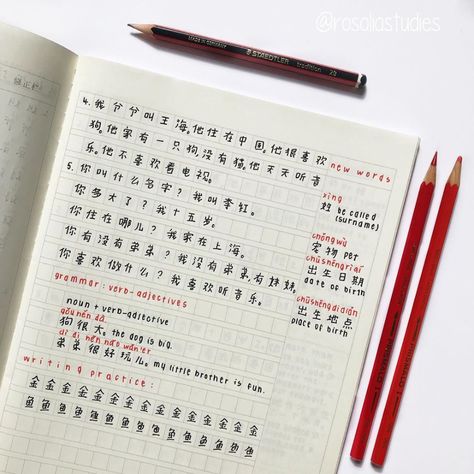 @rosaliastudies
STAEDTLER tradition
4. 我爷爷叫王海,他住在中国,他很喜欢
狗,他家有一只狗,没有猫,他天天听音
乐。他不喜欢看电视。
5. 你叫什么名字? 我叫李红。
你多大了? 我十五岁。
你住在哪儿? 我家在上海。
你有没有弟弟? 我没有弟弟,有妹妹。
你喜欢做什么? 我喜欢听音乐。
grammar: verb-adjectives
noun + verb-adjective
狗很大。 the dog is big.
弟弟很好玩儿。 my little brother is fun.
writing practice:
金金金金金金金金金金金金金
鱼鱼鱼鱼鱼鱼鱼鱼鱼鱼鱼鱼鱼
new words
xìng
姓 be called
(surname)
chǒngwù
宠物 pet
chūshēngrìqī
出生日期
date of birth
chūshēngdìdiǎn
出生地点
place of birth